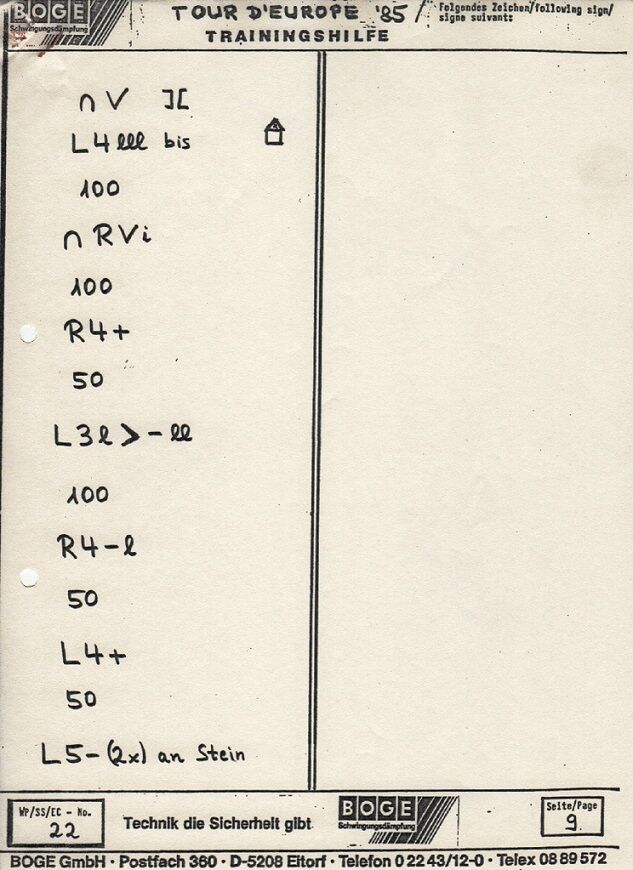 BOGE
Schwingungsdämpfung
TOUR D'EUROPE '85 /
TRAININGSHILFE
Folgendes Zeichen/following sign/
signe suivant:
∩ V ][
L4lll bis
100
∩ RVi
100
R4+
50
L3l > - ll
100
R4-l
50
L4+
50
L5-(2x) an Stein
WP/SS/EC - No.
22
Technik die Sicherheit gibt
BOGE
Schwingungsdämpfung
Seite/Page
9
BOGE GmbH · Postfach 360 · D-5208 Eitorf · Telefon 0 22 43/12-0 · Telex 08 89 572